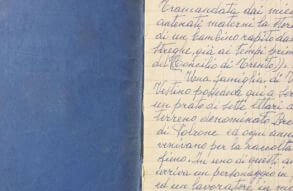 Tramandata dai miei
antenati materni la stor
di un bambino rapito da
streghe, già ai tempi prim
del Concilio di Trento).
Una famiglia di V
Vestino possedeva qui a
un prato di sette ettari
terreno denominato
di ed ogni ann
venivano per la raccolta
fieno. In uno di questi an
arriva un personaggio in
ed un lavoratore